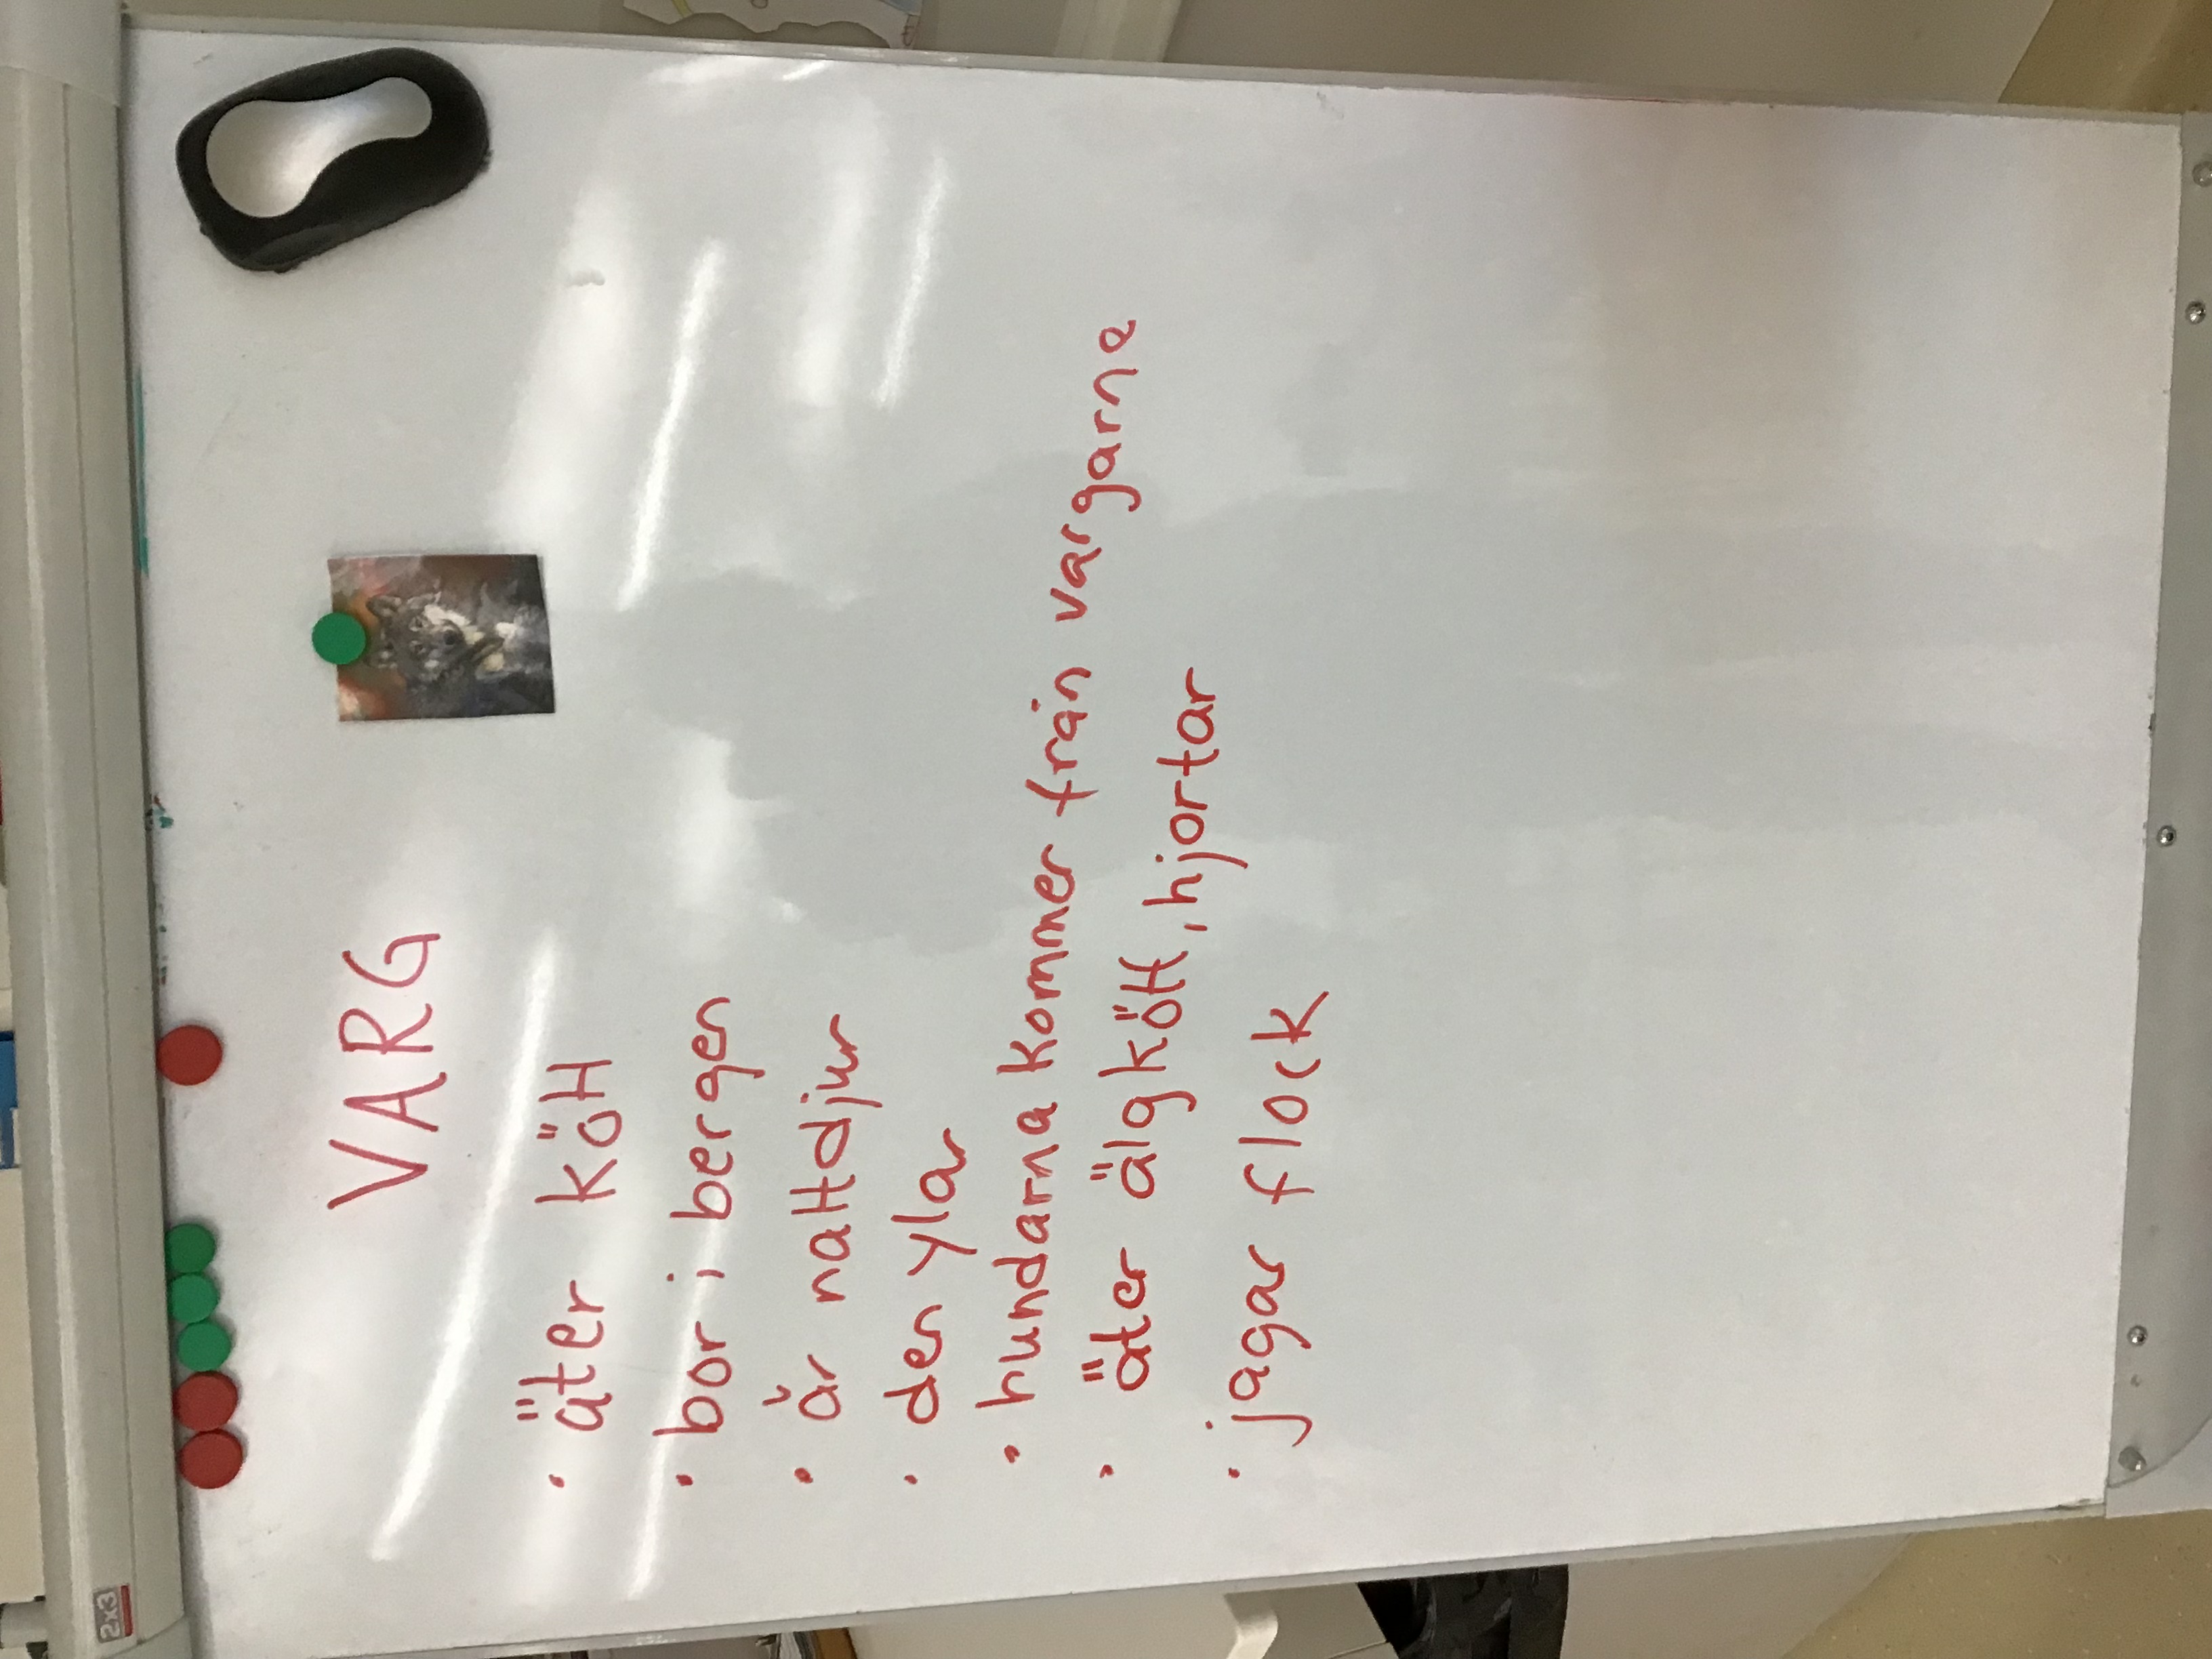 VARG
• äter kött
• bor i bergen
• är nattdjur
• den ylar
• hundarna kommer från vargarna
• äter älgkött, hjortar
• jagar flock
2x3